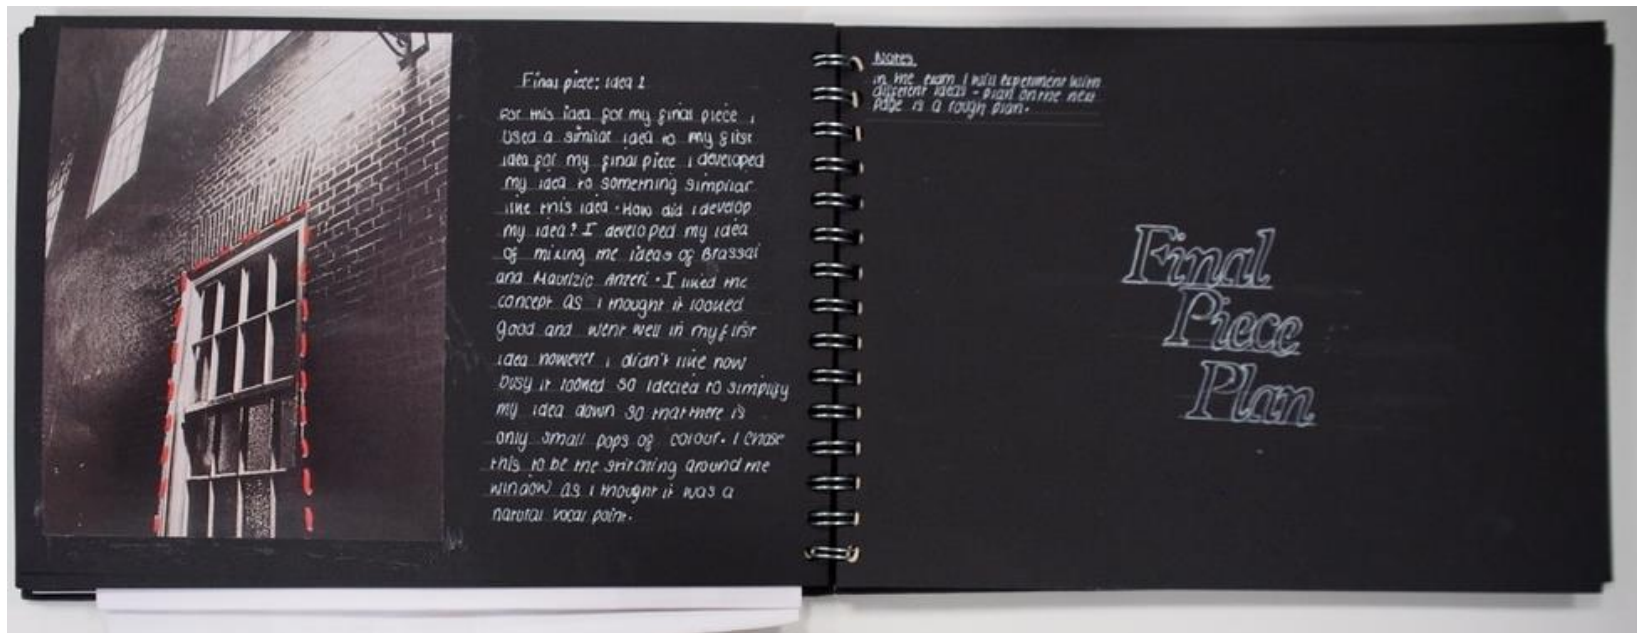 Final piece: idea 2
For this idea for my final piece i
used a similar idea to my first
idea for my final piece i developed
my idea to something simpliar
like this idea. How did i develop
my idea? I developed my idea
of mixing the ideas of Brassai
and Maurizio Anzeri. I liked the
concept as i thought it looked
good and went well in my first
idea however i didn't like how
busy it looked so i decied to simplify
my idea down so that there is
only small pops of colour. I chose
this to be the stitching around the
window as i thought it was a
natural vocal point.
Notes
in the exam I will experiment with
different ideas - plan on the next
page is a rough plan.
Final
Piece
Plan